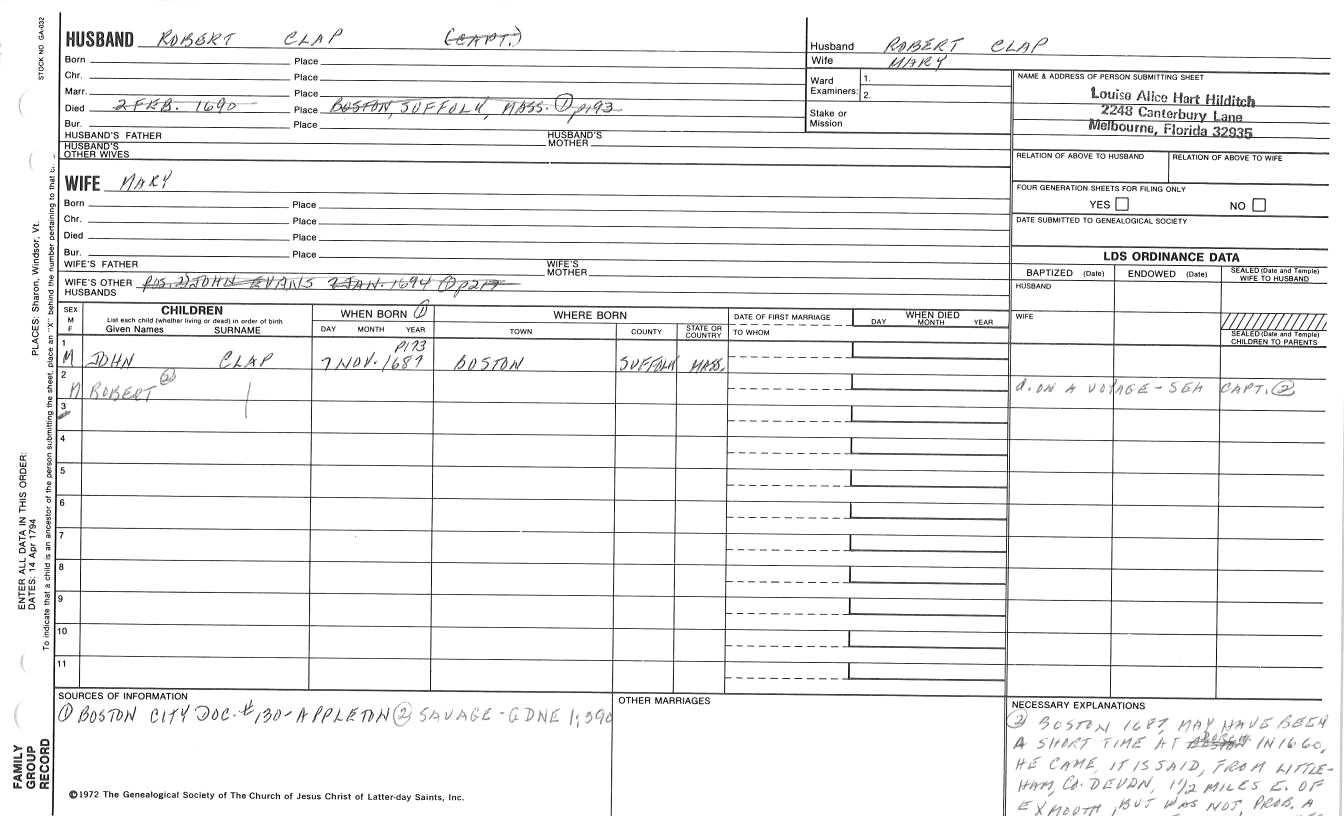 STOCK NO. GA-032
HUSBAND ROBERT CLAP (CAPT.)
Born Place
Chr. Place
Marr. Place
Died 2 FEB. 1690 Place BOSTON, SUFFOLK, MASS. ① p193
Bur. Place
HUSBAND'S FATHER HUSBAND'S MOTHER
HUSBAND'S OTHER WIVES
Husband ROBERT CLAP
Wife MARY
Ward Examiners: 1.
2.
Stake or Mission
NAME & ADDRESS OF PERSON SUBMITTING SHEET
Louise Alice Hart Hilditch
2248 Canterbury Lane
Melbourne, Florida 32935
RELATION OF ABOVE TO HUSBAND RELATION OF ABOVE TO WIFE
FOUR GENERATION SHEETS FOR FILING ONLY
YES NO
DATE SUBMITTED TO GENEALOGICAL SOCIETY
WIFE MARY
Born Place
Chr. Place
Died Place
Bur. Place
WIFE'S FATHER WIFE'S MOTHER
WIFE'S OTHER HUSBANDS JOHN EVANS 2 JAN. 1694 ① p217
LDS ORDINANCE DATA
BAPTIZED (Date) ENDOWED (Date) SEALED (Date and Temple) WIFE TO HUSBAND
HUSBAND
WIFE
SEALED (Date and Temple) CHILDREN TO PARENTS
SEX M F
CHILDREN
List each child (whether living or dead) in order of birth
Given Names SURNAME
WHEN BORN ①
DAY MONTH YEAR
WHERE BORN
TOWN COUNTY STATE OR COUNTRY
DATE OF FIRST MARRIAGE
TO WHOM
WHEN DIED
DAY MONTH YEAR
1 P173
M JOHN CLAP 7 NOV. 1687 BOSTON SUFFOLK MASS.
2
M ROBERT d. ON A VOYAGE - SEA CAPT. ②
3
4
5
6
7
8
9
10
11
SOURCES OF INFORMATION
① BOSTON CITY DOC. # 130 - APPLETON ② SAVAGE - GDNE 1;390
OTHER MARRIAGES
NECESSARY EXPLANATIONS
② BOSTON 1687, MAY HAVE BEEN
A SHORT TIME AT IN 1660,
HE CAME, IT IS SAID, FROM LITTLE-
HAM, Co. DEVON, 1½ MILES E. OF
EXMOUTH, BUT WAS NOT, PROB. A
©1972 The Genealogical Society of The Church of Jesus Christ of Latter-day Saints, Inc.
FAMILY GROUP RECORD
ENTER ALL DATA IN THIS ORDER:
DATES: 14 Apr 1794
PLACES: Sharon, Windsor, Vt.
To indicate that a child is an ancestor of the person submitting the sheet, place an "X" behind the number pertaining to that